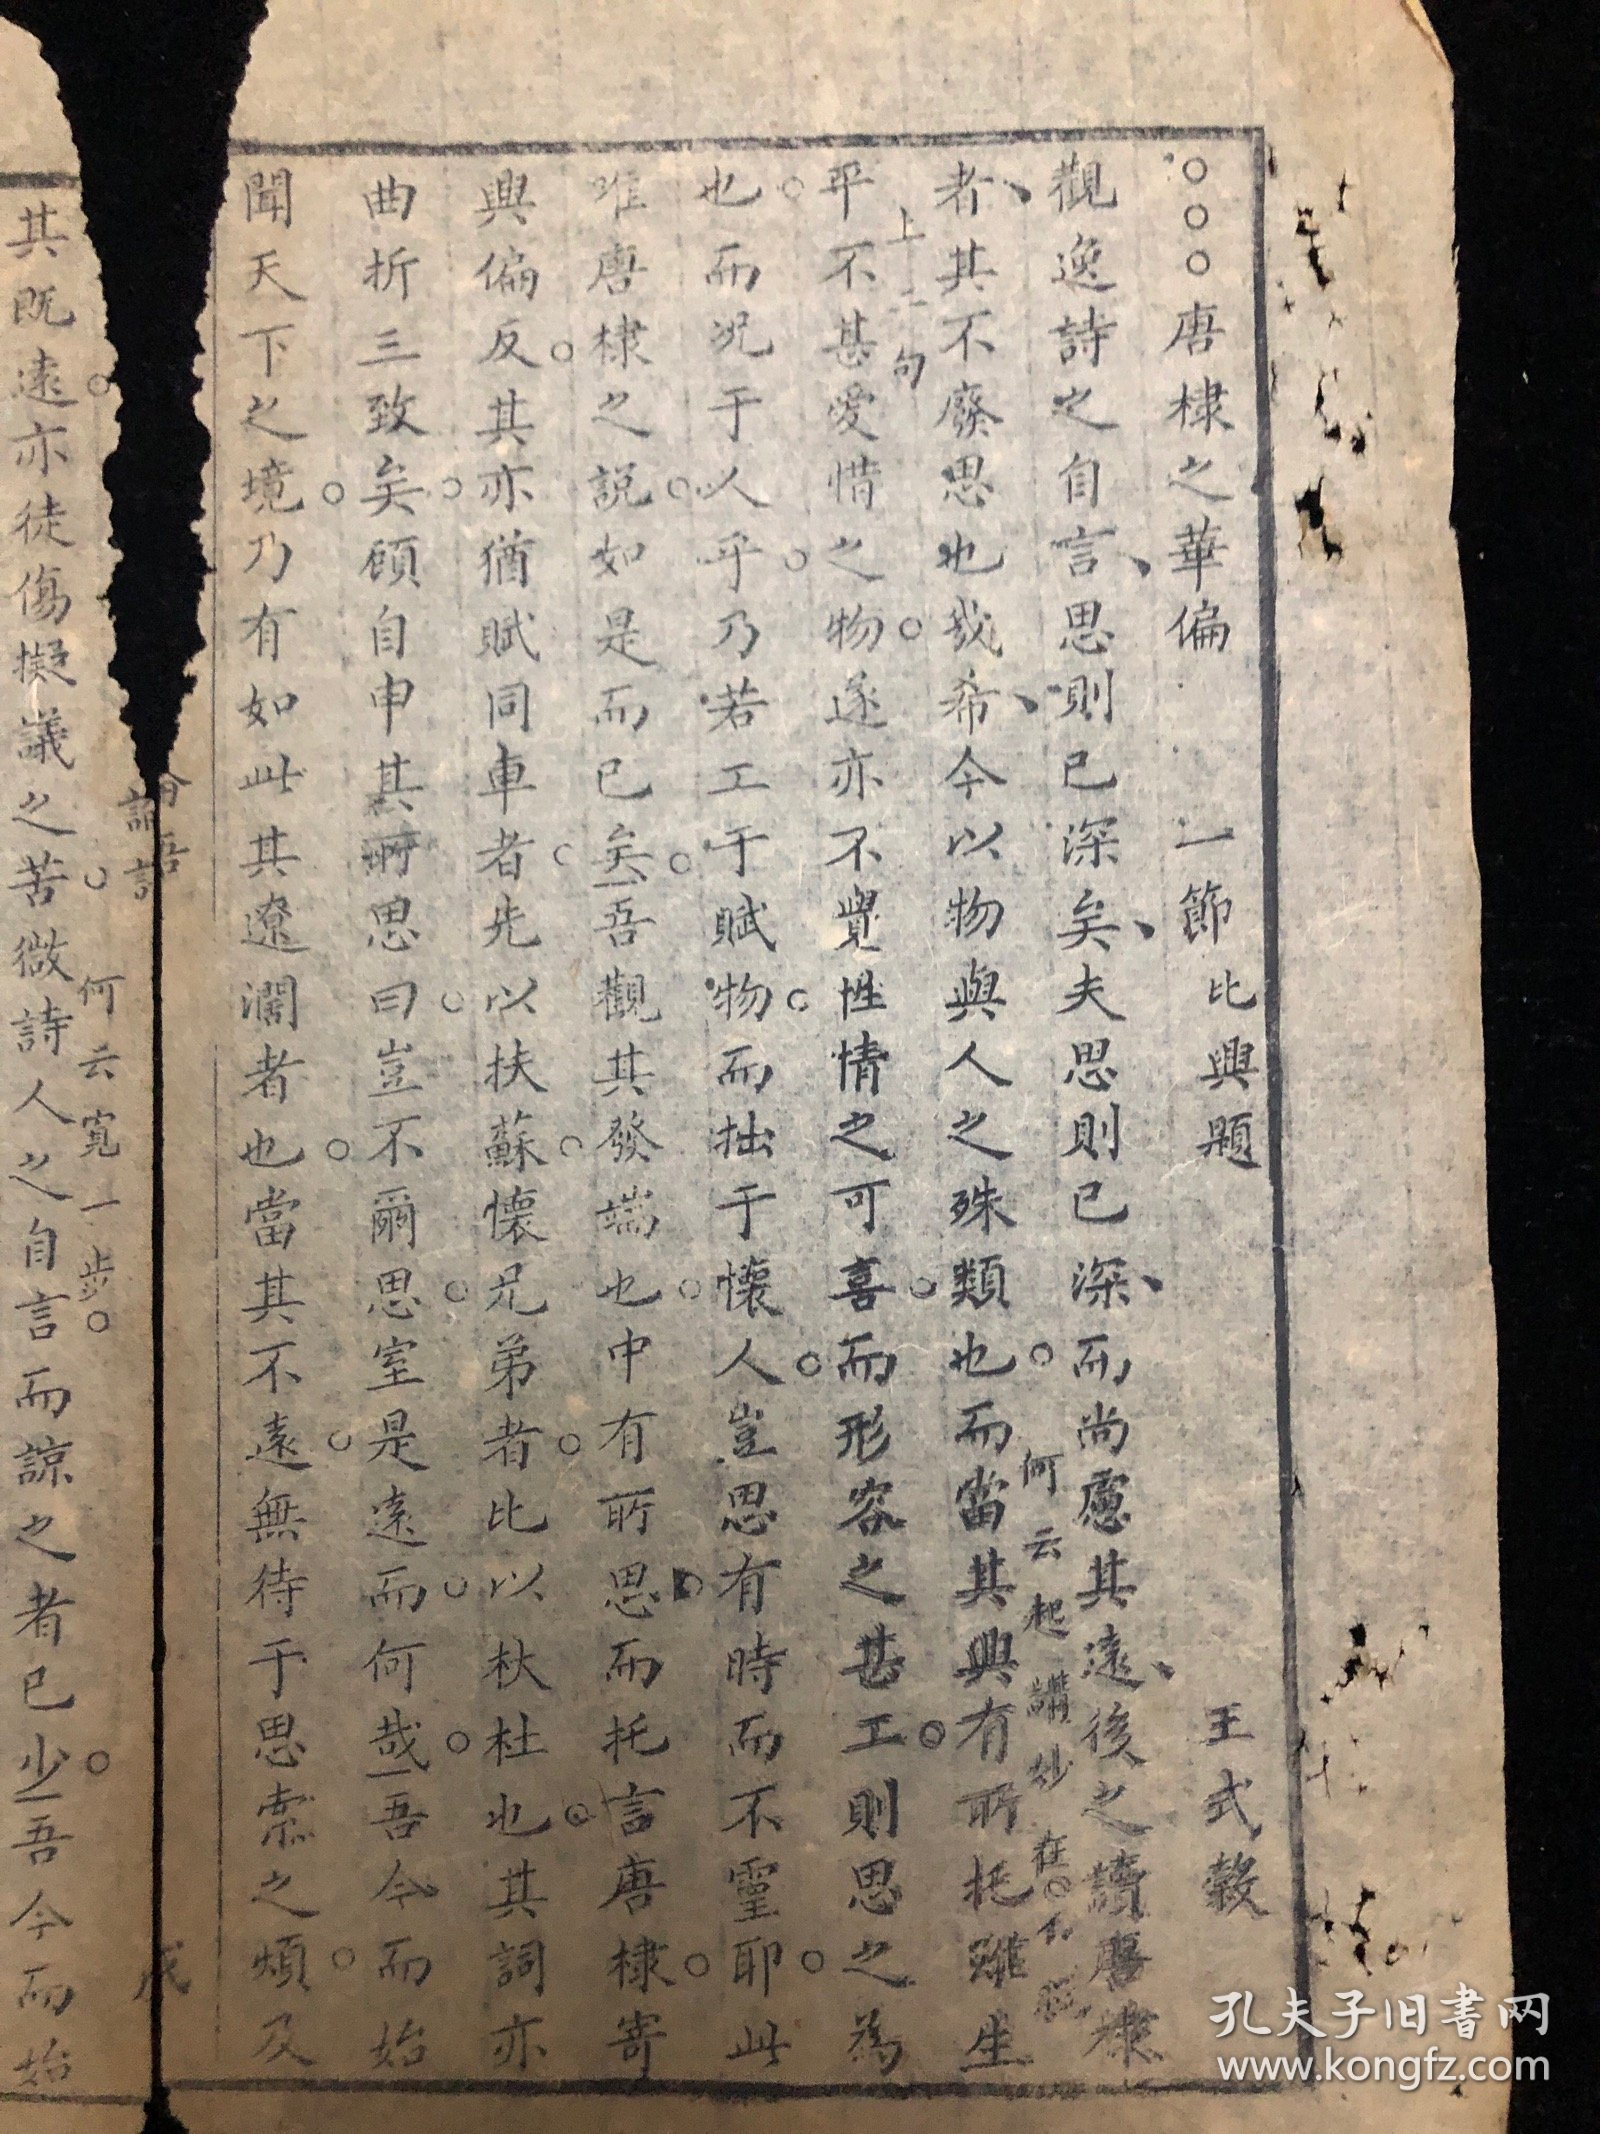 ○○○唐棣之華偏 一節 比興題 王式穀
觀逸詩之自言、思則已深矣、夫思則已深、而尚慮其遠、後之讀唐棣
者、其不廢思也哉、希今以物與人之殊類也○而當其興有所托雖生
何云起講妙在
平不甚愛惜之物○遂亦不覺性情之可喜○而形容之甚工○則思之為
上二句
也○而況于人乎○乃若工于賦物○而拙于懷人○豈思有時而不靈耶○此
唯唐棣之說○如是而已矣○吾觀其發端也○中有所思而托言唐棣○寄
興偏反○其亦猶賦同車者○先以扶蘇○懷兄弟者○比以杕杜也○其詞亦
曲折三致矣○顧自申其所思曰○豈不爾思○室是遠而○何哉○吾今而始
聞天下之境○乃有如此其遼濶者也○當其不遠○無待于思索之煩○及
論語
何云寬一步○
其既遠○亦徒傷擬議之苦○微詩人之自言而諒之者已少○吾今而始
孔夫子旧书网
www.kongfz.com